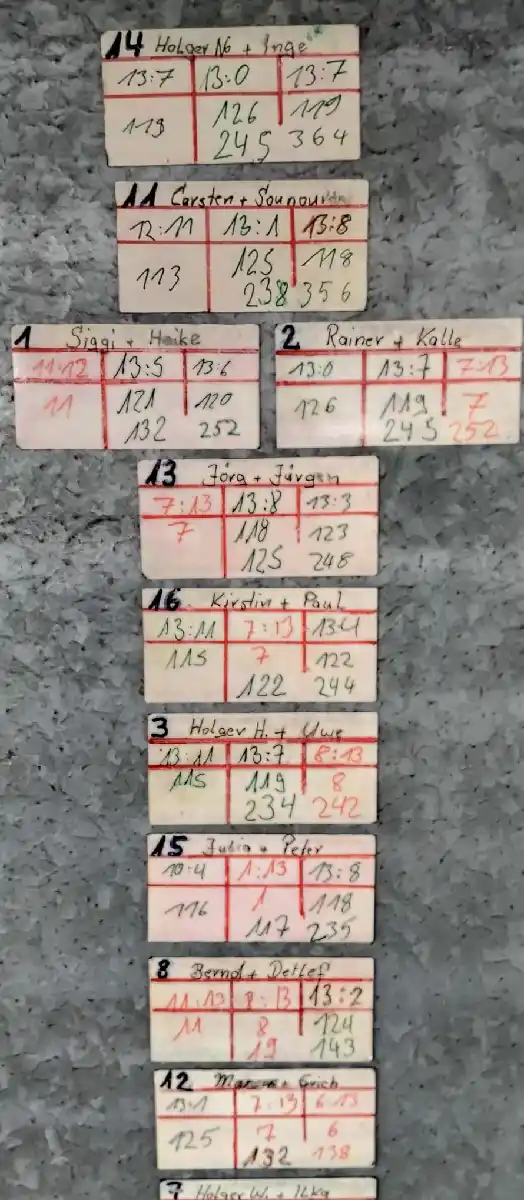 14 Holger No + Inge
13:7 13:0 13:7
119 126 119
245 364
11 Carsten +
12:11 13:1 13:8
113 125 118
238 356
1 Siggi + Heike
11:12 13:5 13:6
11 121 120
132 252
2 Rainer + Kalle
13:0 13:7 7:13
126 119 7
245 252
13 Jörg + Jürgen
7:13 13:8 13:3
7 118 123
125 248
16 Kirstin + Paul
13:11 7:13 13:4
115 7 122
122 244
3 Holger H. + Uwe
13:11 13:7 8:13
115 119 8
234 242
15 Julia + Peter
10:4 1:13 13:8
116 1 118
117 235
8 Bernd + Detlef
11:13 8:13 13:2
11 8 124
19 143
12 + Erich
13:1 7:13 6:13
125 7 6
132 138
7 Holger W. +